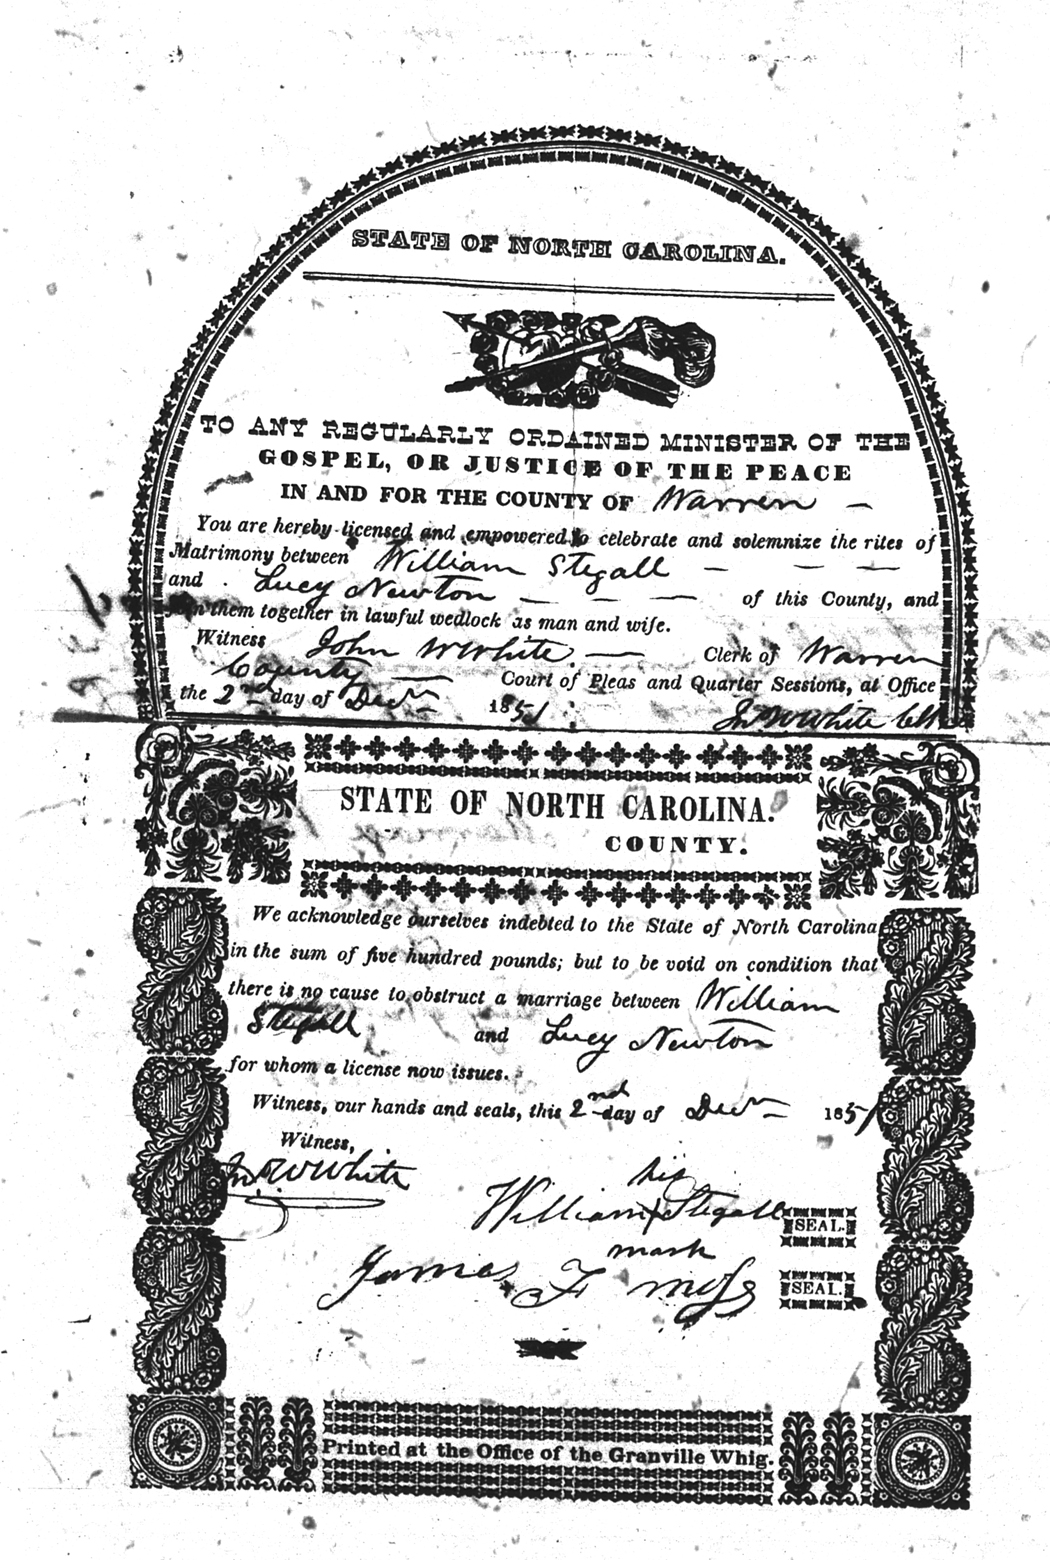 STATE OF NORTH CAROLINA.
TO ANY REGULARLY ORDAINED MINISTER OF THE
GOSPEL, OR JUSTICE OF THE PEACE
IN AND FOR THE COUNTY OF Warren —
You are hereby licensed and empowered to celebrate and solemnize the rites of
Matrimony between William Stegall — — —
and Lucy Newton — — — of this County, and
join them together in lawful wedlock as man and wife.
Witness John W White. — Clerk of Warren
County — Court of Pleas and Quarter Sessions, at Office
the 2nd day of Decr 1851
Jno W White Clk
STATE OF NORTH CAROLINA.
COUNTY.
We acknowledge ourselves indebted to the State of North Carolina
in the sum of five hundred pounds; but to be void on condition that
there is no cause to obstruct a marriage between William
Stegall and Lucy Newton
for whom a license now issues.
Witness, our hands and seals, this 2nd day of Decr 1851
Witness,
Jno W White
his
William X Stegall SEAL.
mark
James F Moss SEAL.
Printed at the Office of the Granville Whig.